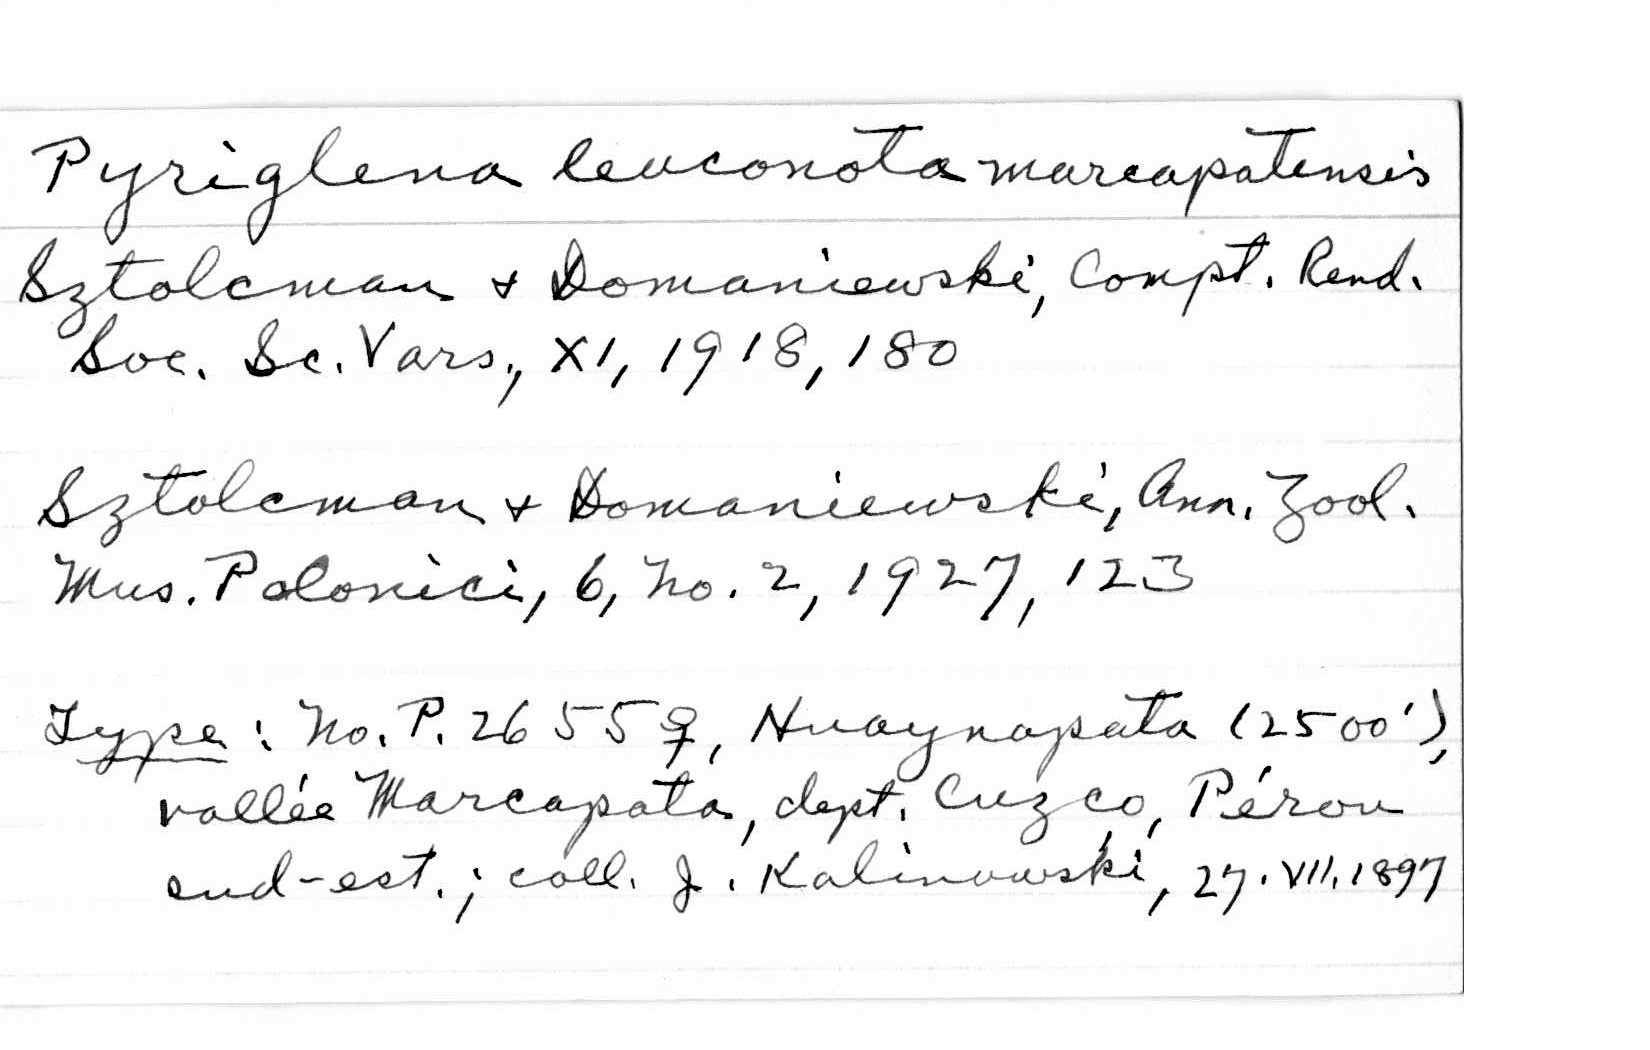 Pyriglena leuconota marcapatensis
Sztolcman + Domaniewski, Compt. Rend.
Soc. Sc. Vars., XI, 1918, 180
Sztolcman + Domaniewski, Ann. Zool.
Mus. Polonici, 6, No. 2, 1927, 123
Type: No. P. 2655♀, Huaynapata (2500'),
vallée Marcapata, dept. Cuzco, Pérou
sud-est.; coll. J. Kalinowski, 27.VII.1897